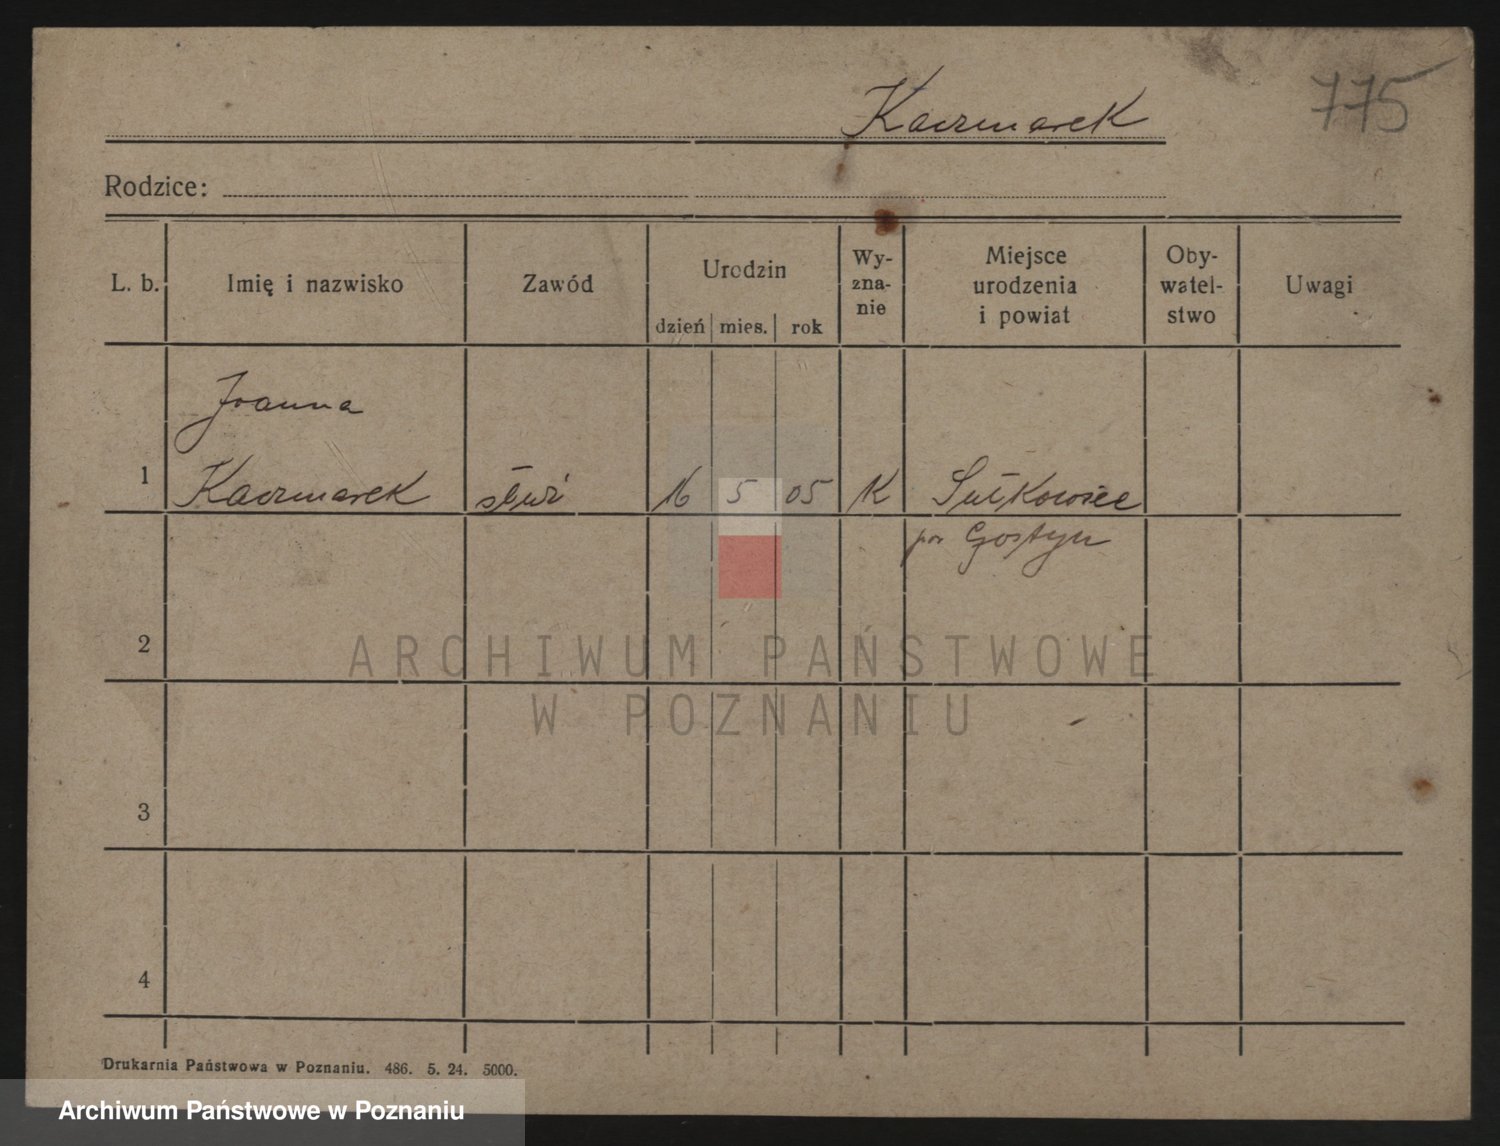 Kaczmarek 775
Rodzice:
L. b. Imię i nazwisko Zawód Urodzin dzień mies. rok Wy-zna-nie Miejsce urodzenia i powiat Oby-watel-stwo Uwagi
Joanna
1 Kaczmarek służ 16 5 05 K Sułkowice
pow Gostyn
2
ARCHIWUM PAŃSTWOWE
W POZNANIU
3
4
Drukarnia Państwowa w Poznaniu. 486. 5. 24. 5000.
Archiwum Państwowe w Poznaniu